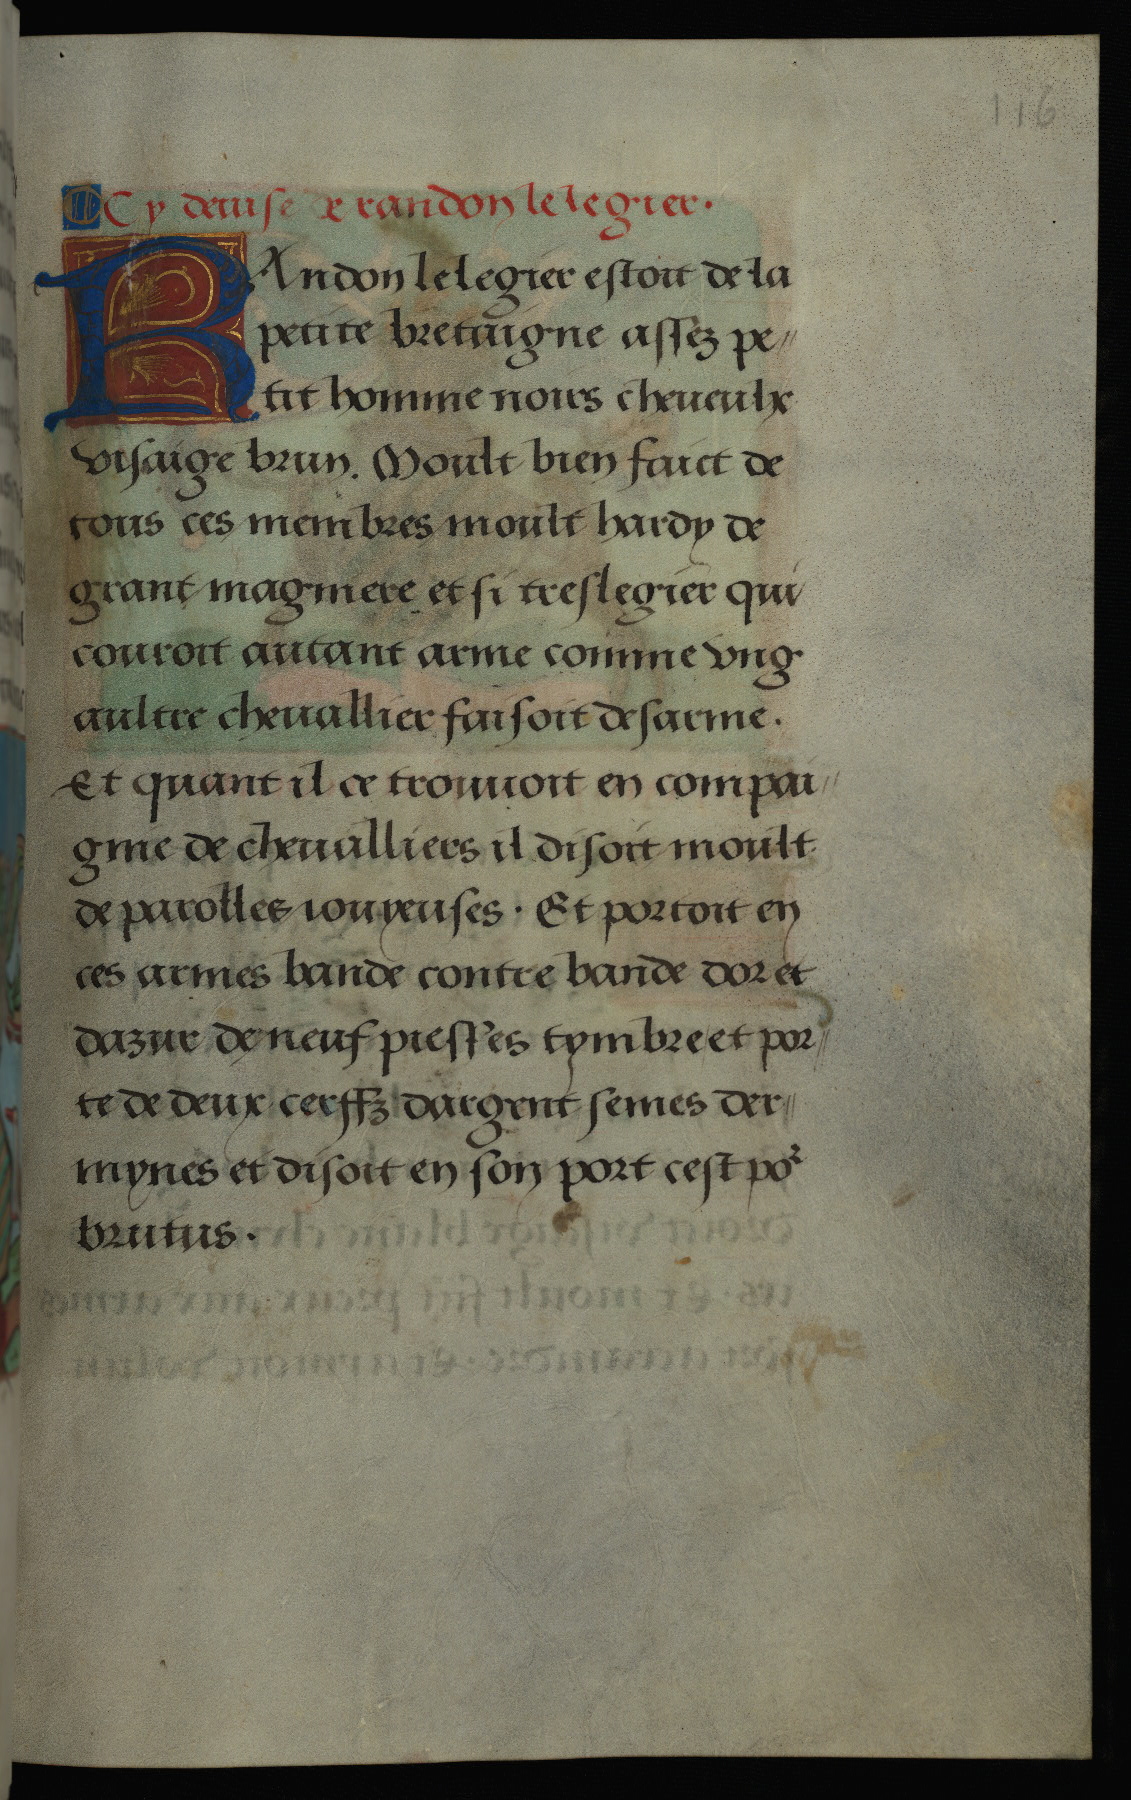 116
Cy deuise de randon le legier.
RAndon le legier estoit de la
petite bretaigne assez pe//
tit homme noirs cheueulx
visaige brun. Moult bien faict de
tous ces membres moult hardy de
grant magniere et si treslegier qui
couroit autant arme comme vng
aultre cheuallier faisoit desarme.
Et quant il ce trouuoit en compai//
gnie de cheualliers il disoit moult
de parolles iouyeuses. Et portoit en
ces armes bande contre bande dor et
dazur de neuf piesses tymbre et por//
te de deux cerffz dargent semes der//
mynes et disoit en son port cest por
brutus.